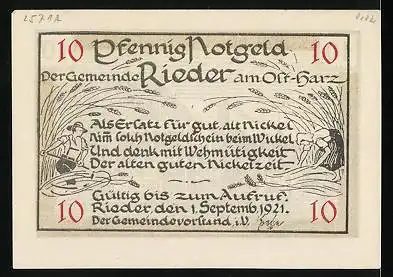 10 Pfennig Notgeld 10
Der Gemeinde Rieder am Ost-Harz
Als Ersatz für gut, alt Nickel
Nim̅ solch Notgeldschein beim Wickel
Und denk mit Wehmütigkeit
Der alten guten Nickelzeit
Gültig bis zum Aufruf.
10 Rieder, den 1. Septemb. 1921. 10
Der Gemeindevorstand, i.V.